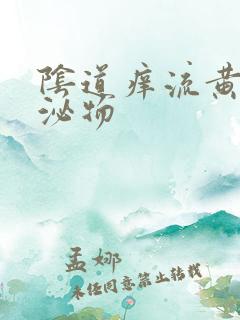 陰道痒流黄
泌物
孟娜
未经同意禁止转载